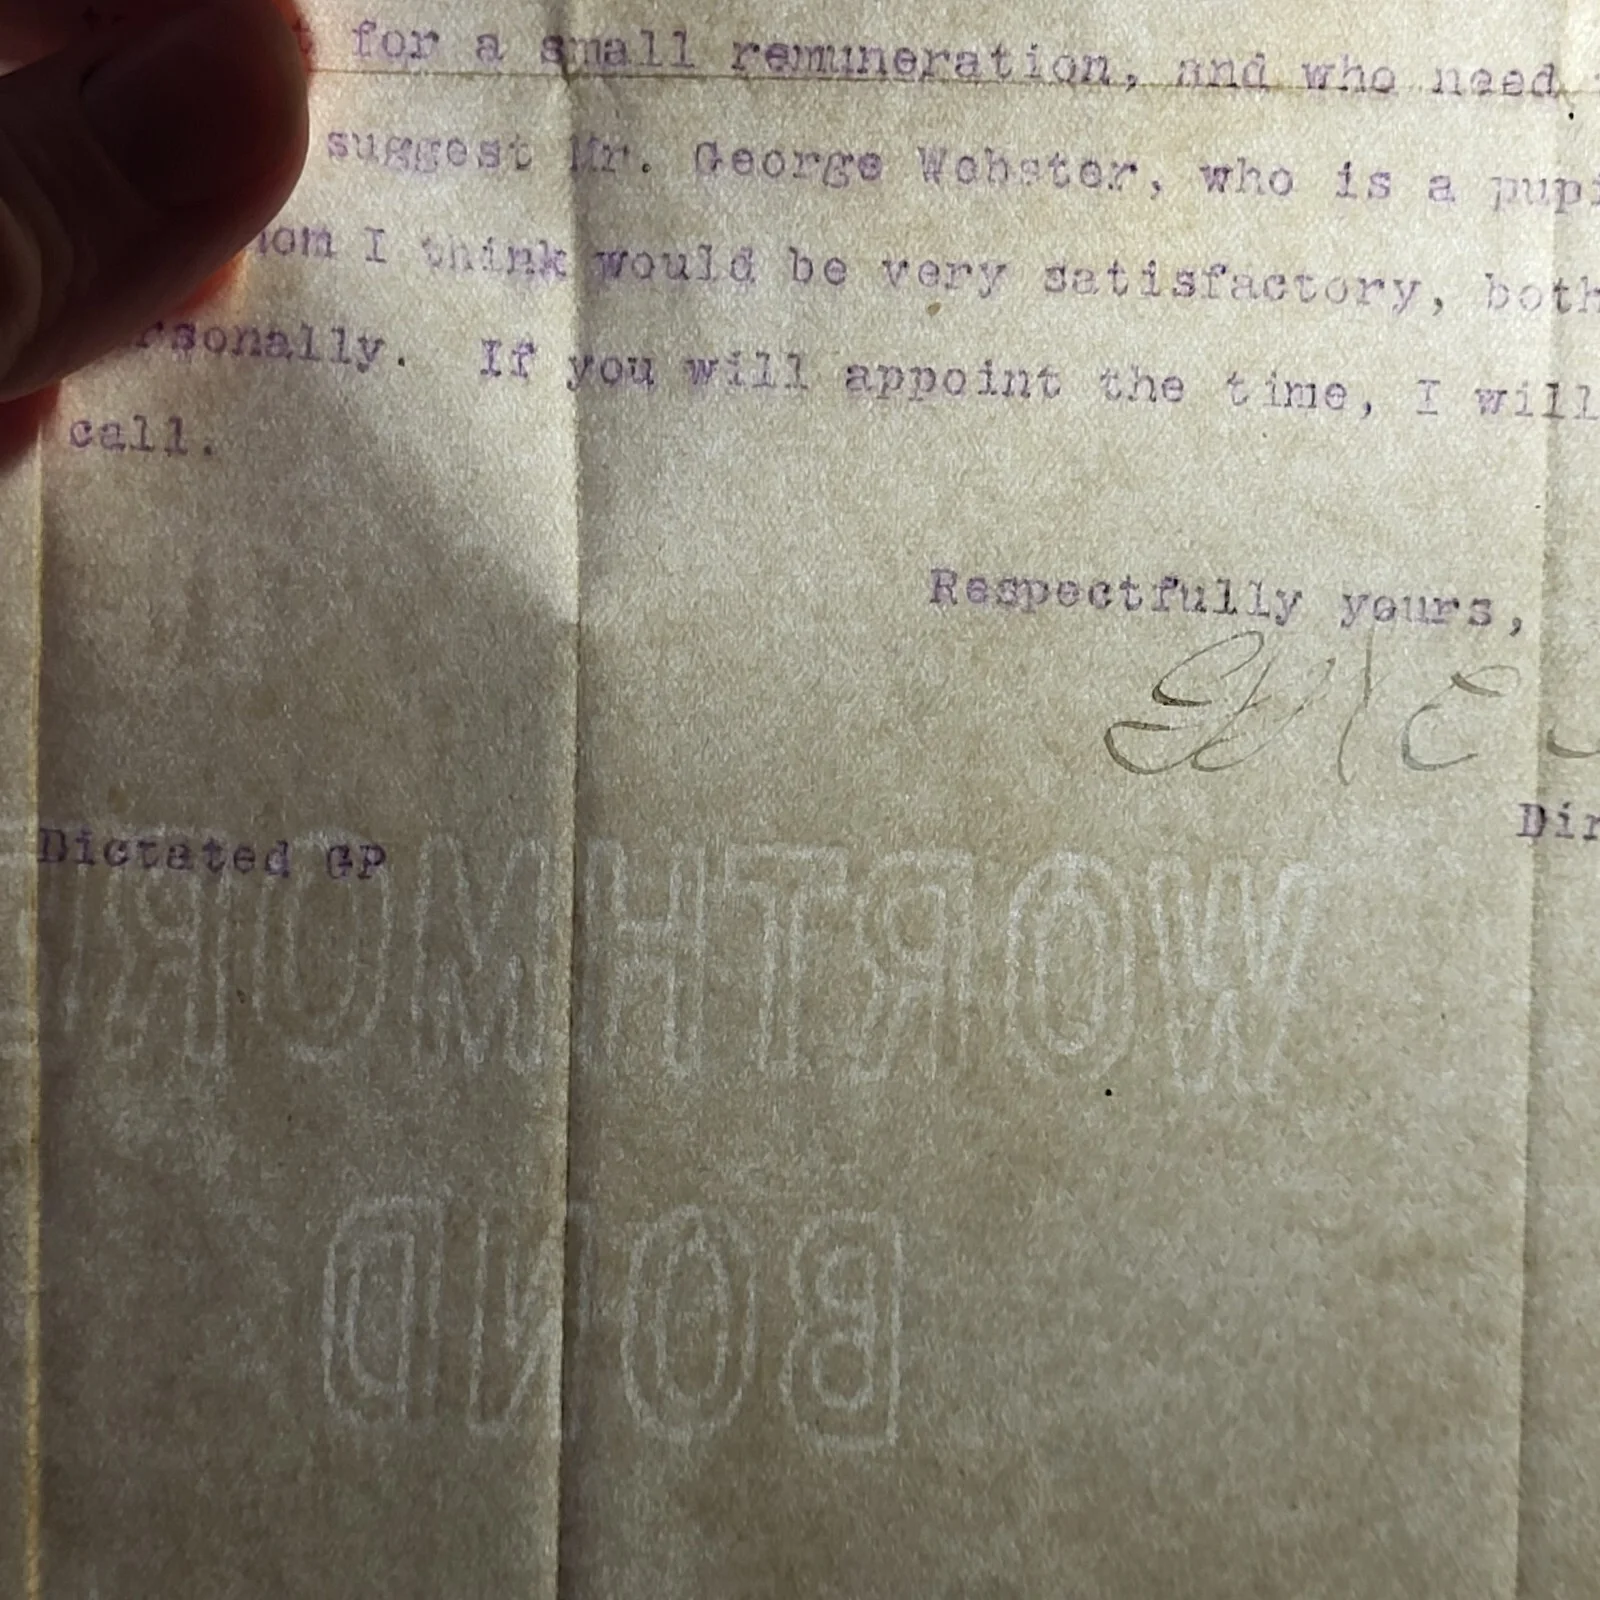 for a small remuneration, and who need
suggest Mr. George Webster, who is a pupi
hom I think would be very satisfactory, both
rsonally. If you will appoint the time, I will
call.
Respectfully yours,
Dir
Dictated GP
WORTHMOR
BOND